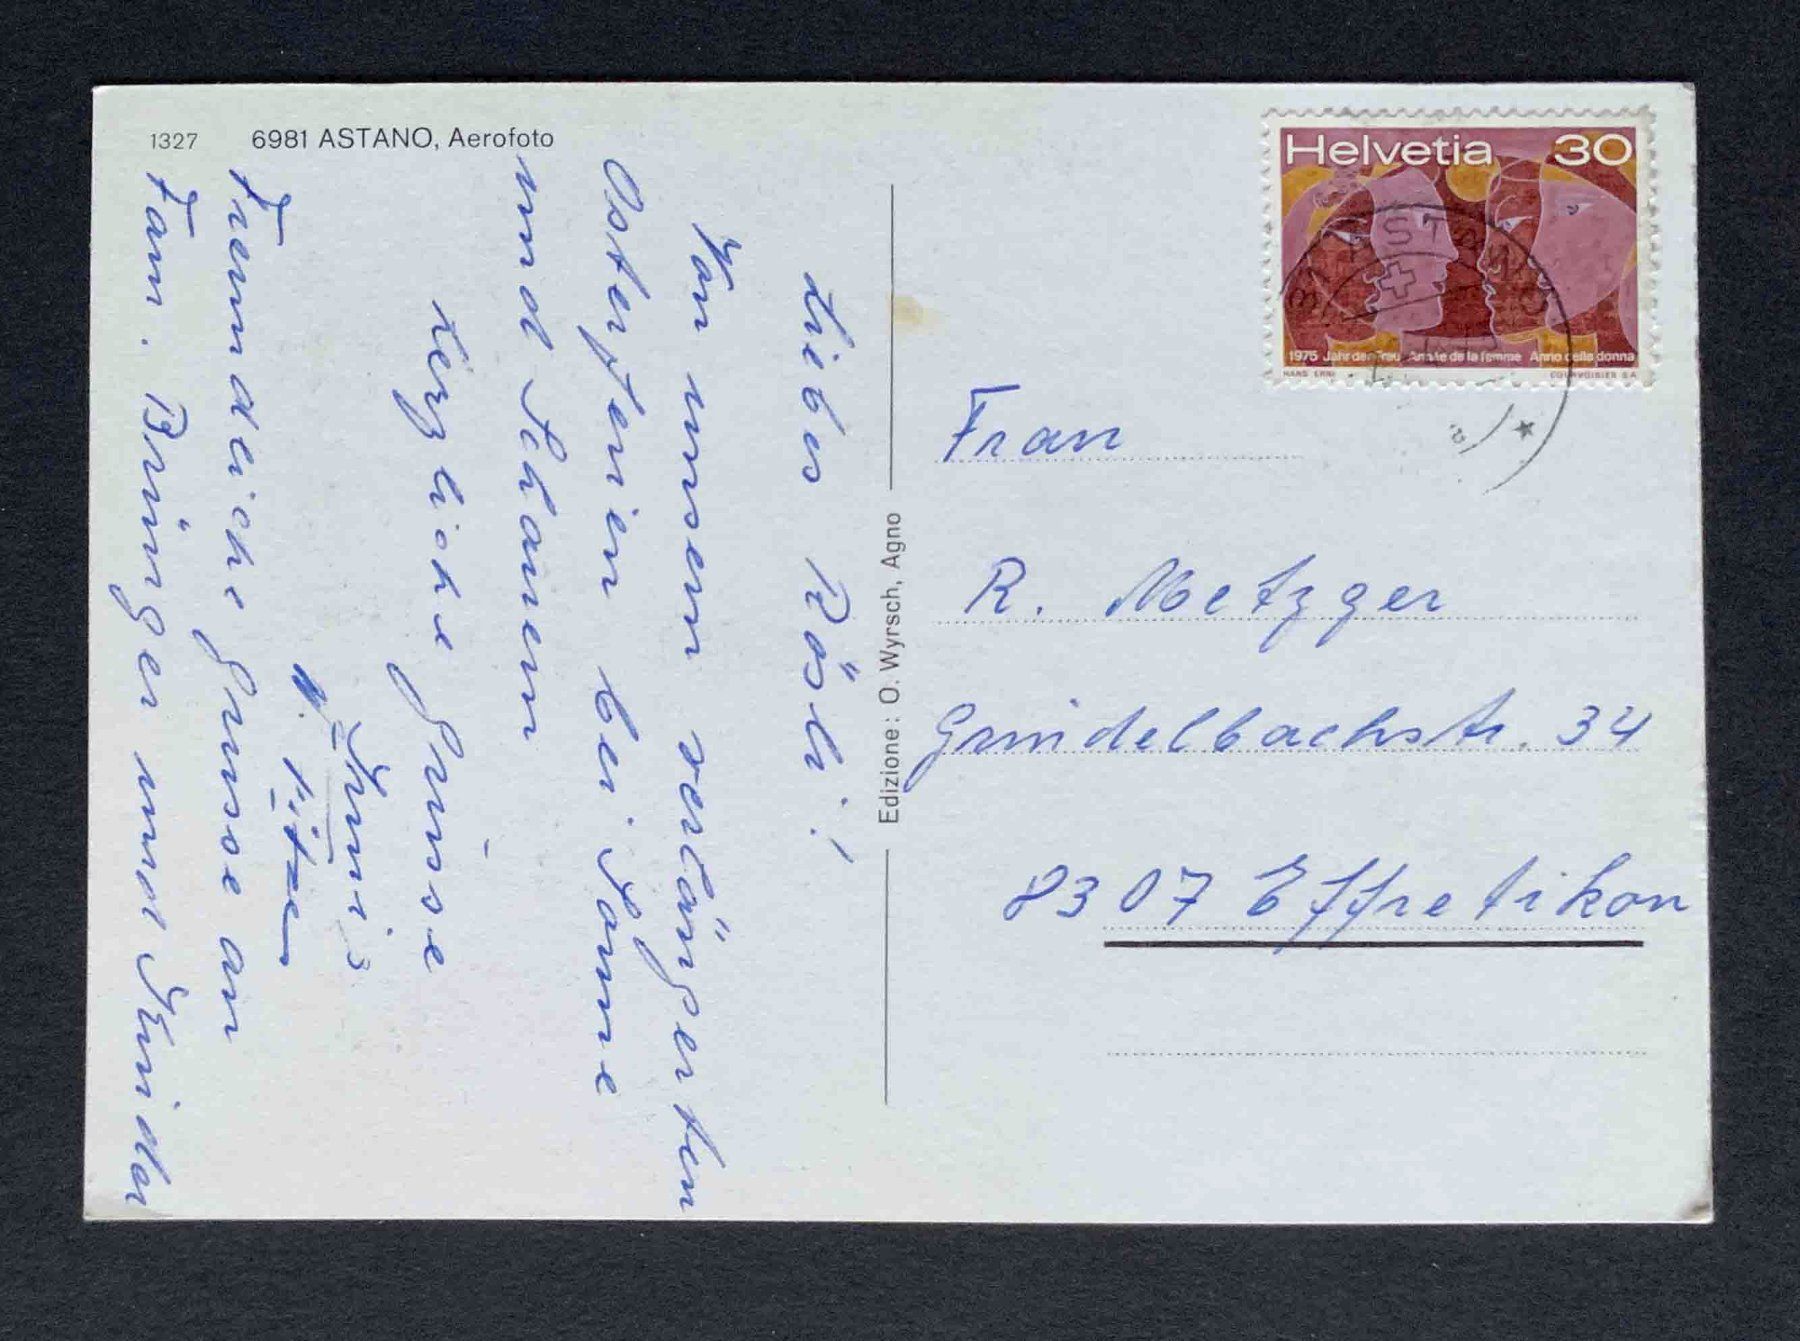 1327 6981 ASTANO, Aerofoto
Liebes Rösli!
Von unsern verlängerten
Osterferien bei Sonne
und Schauern
Herzliche Grüsse
Freundliche Grüsse an
Fam. Bringer und Kinder
Edizione: O. Wyrsch, Agno
Helvetia 30
1975 Jahr der Frau Année de la femme Anno della donna
HANS ERNI COURVOISIER S.A.
ASTANO
Frau
R. Metzger
Grindelbachstr. 34
8307 Effretikon